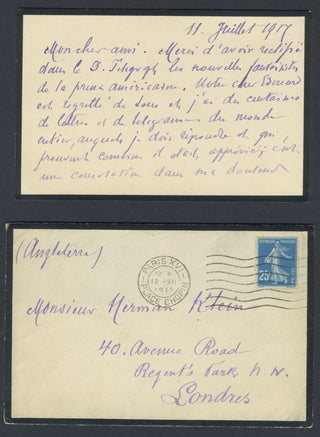 11 Juillet 1917
Mon cher ami. Merci d'avoir rectifié
dans le D. Telegraph les nouvelles fantaisistes
de la presse américaine. Notre cher Edouard
est regretté de tous et j'ai des centaines
de lettres et de télégrammes du monde
entier, auxquels je dois répondre et qui
prouvent combien il était apprécié; c'est
une consolation dans ma douleur
(Angleterre)
PARIS XVI
12 -VII
1917
PLACE CHOPIN
REPUBLIQUE FRANÇAISE
25c
POSTES
Monsieur Herman Klein
40. Avenue Road
Regent's Park N.W.
Londres